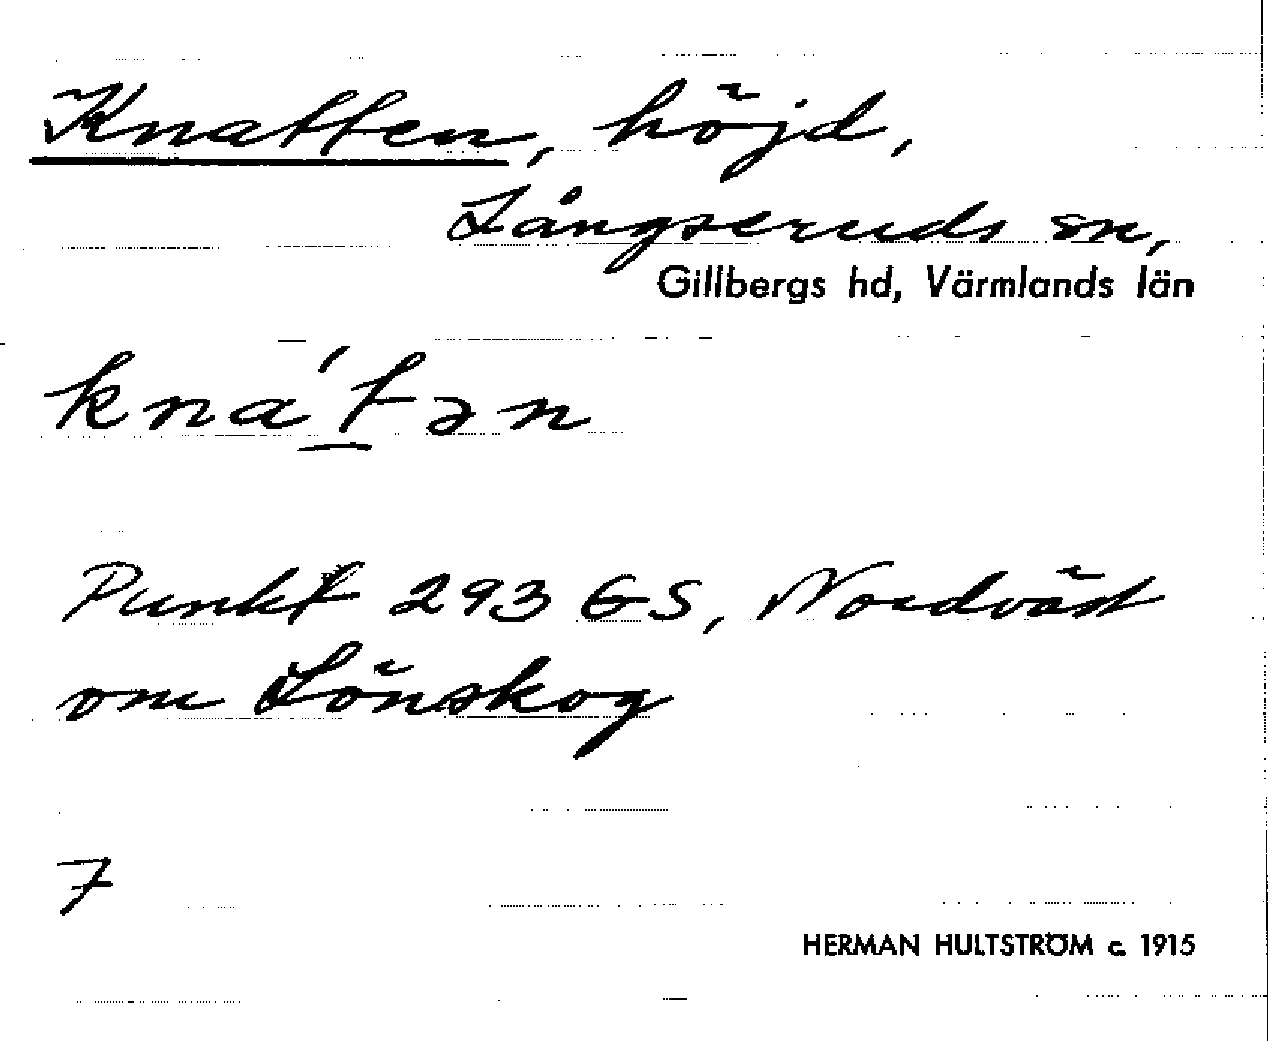 Knatten, höjd,
Långseruds sn,
Gillbergs hd, Värmlands län
kna´t̲ən
Punkt 293 GS, Nordväst
om Lönskog
7
HERMAN HULTSTRÖM c. 1915